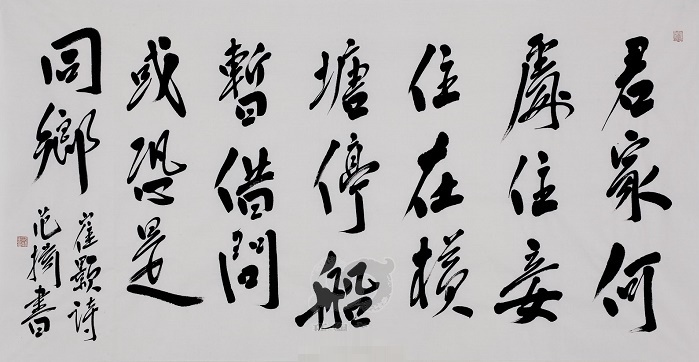 君家何
處住妾
住在橫
塘停船
暫借問
或恐是
同鄉
崔顥詩
范書